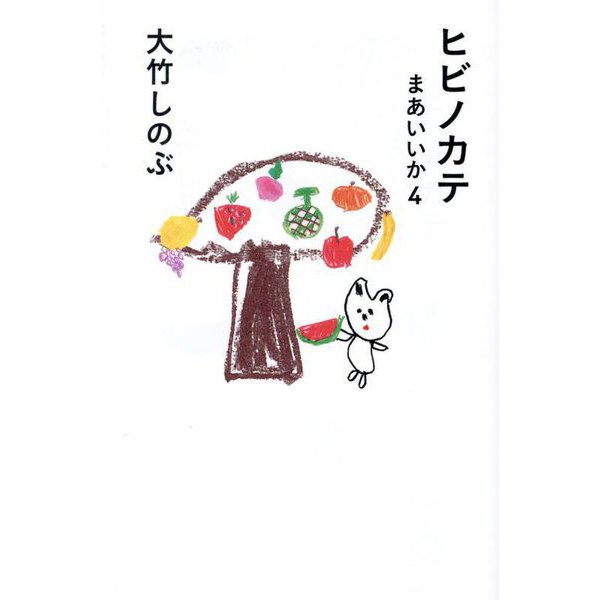 ヒビノカテ
まあいいか 4
大竹しのぶ